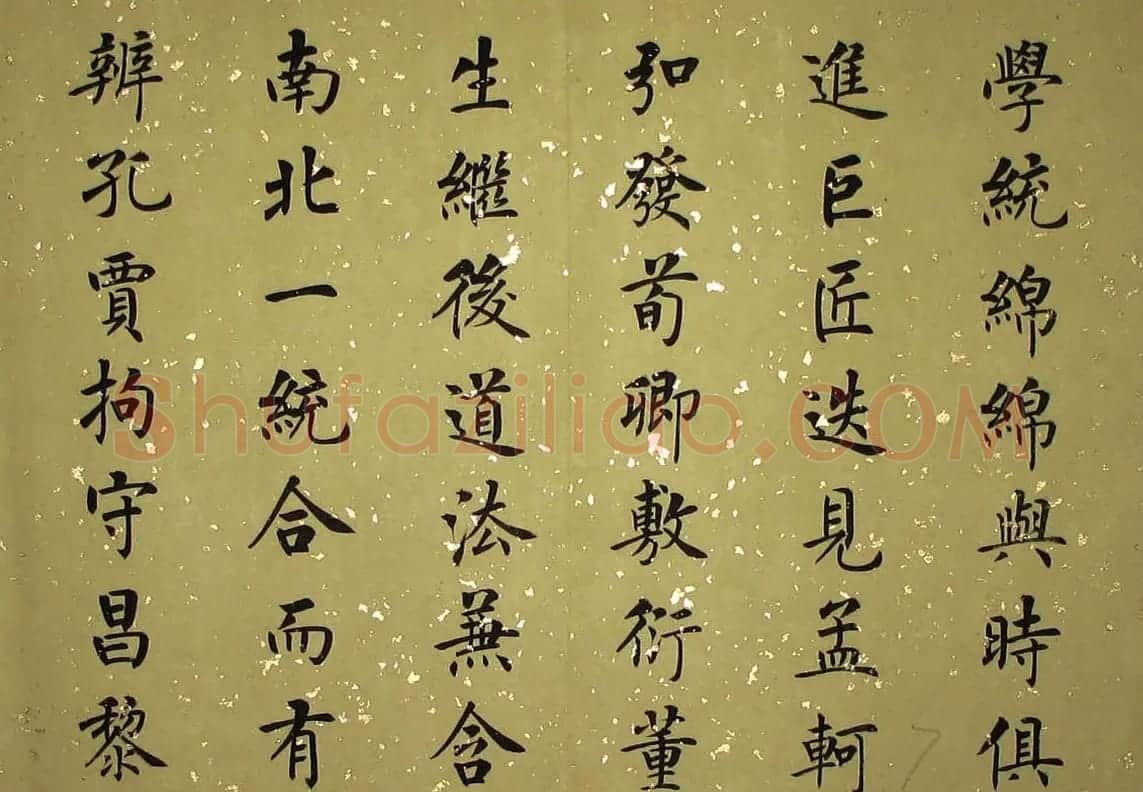 學統綿綿與時俱
進巨匠迭見孟軻
弘發荀卿敷衍董
生繼後道法無含
南北一統合而有
辨孔賈拘守昌黎
Shufaziliao.COM